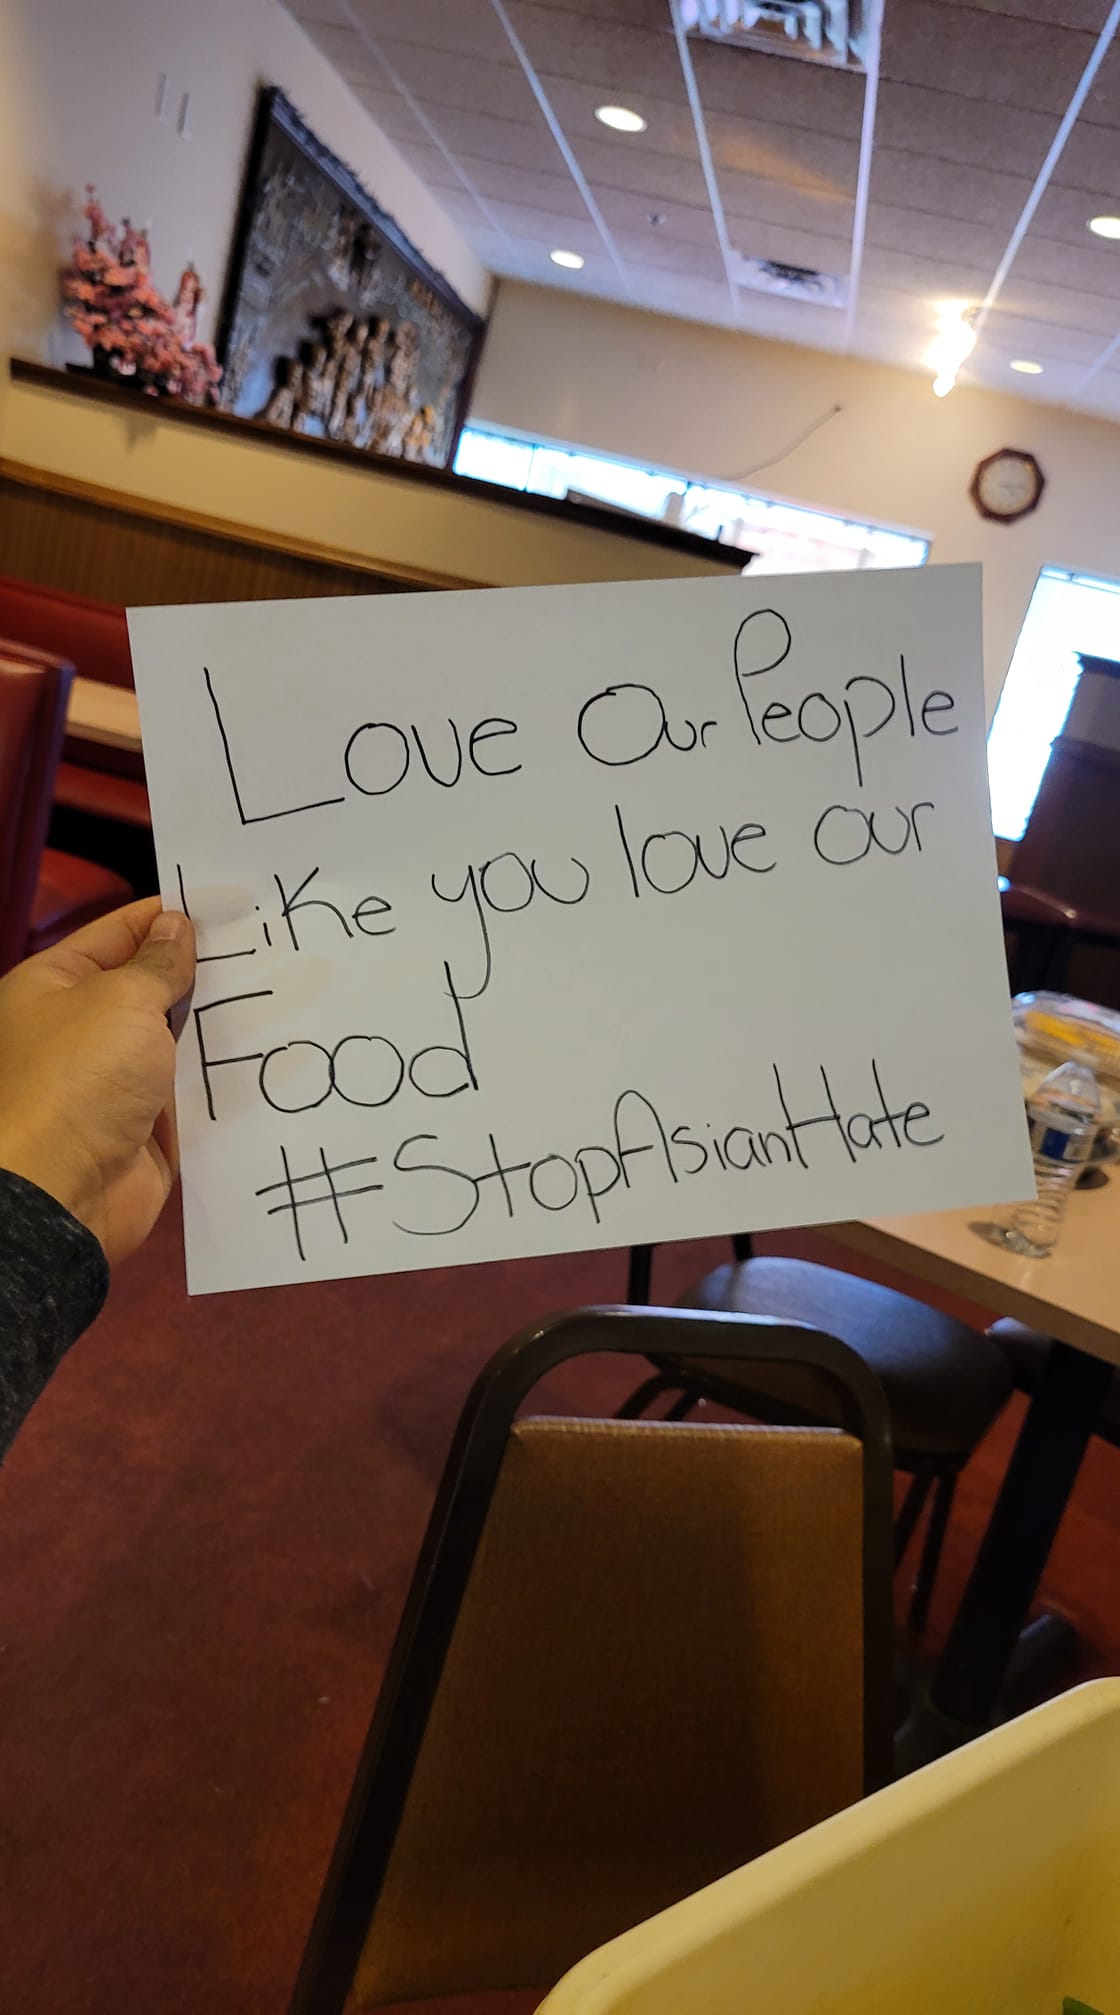 Love Our People
Like you love our
Food
#StopAsianHate